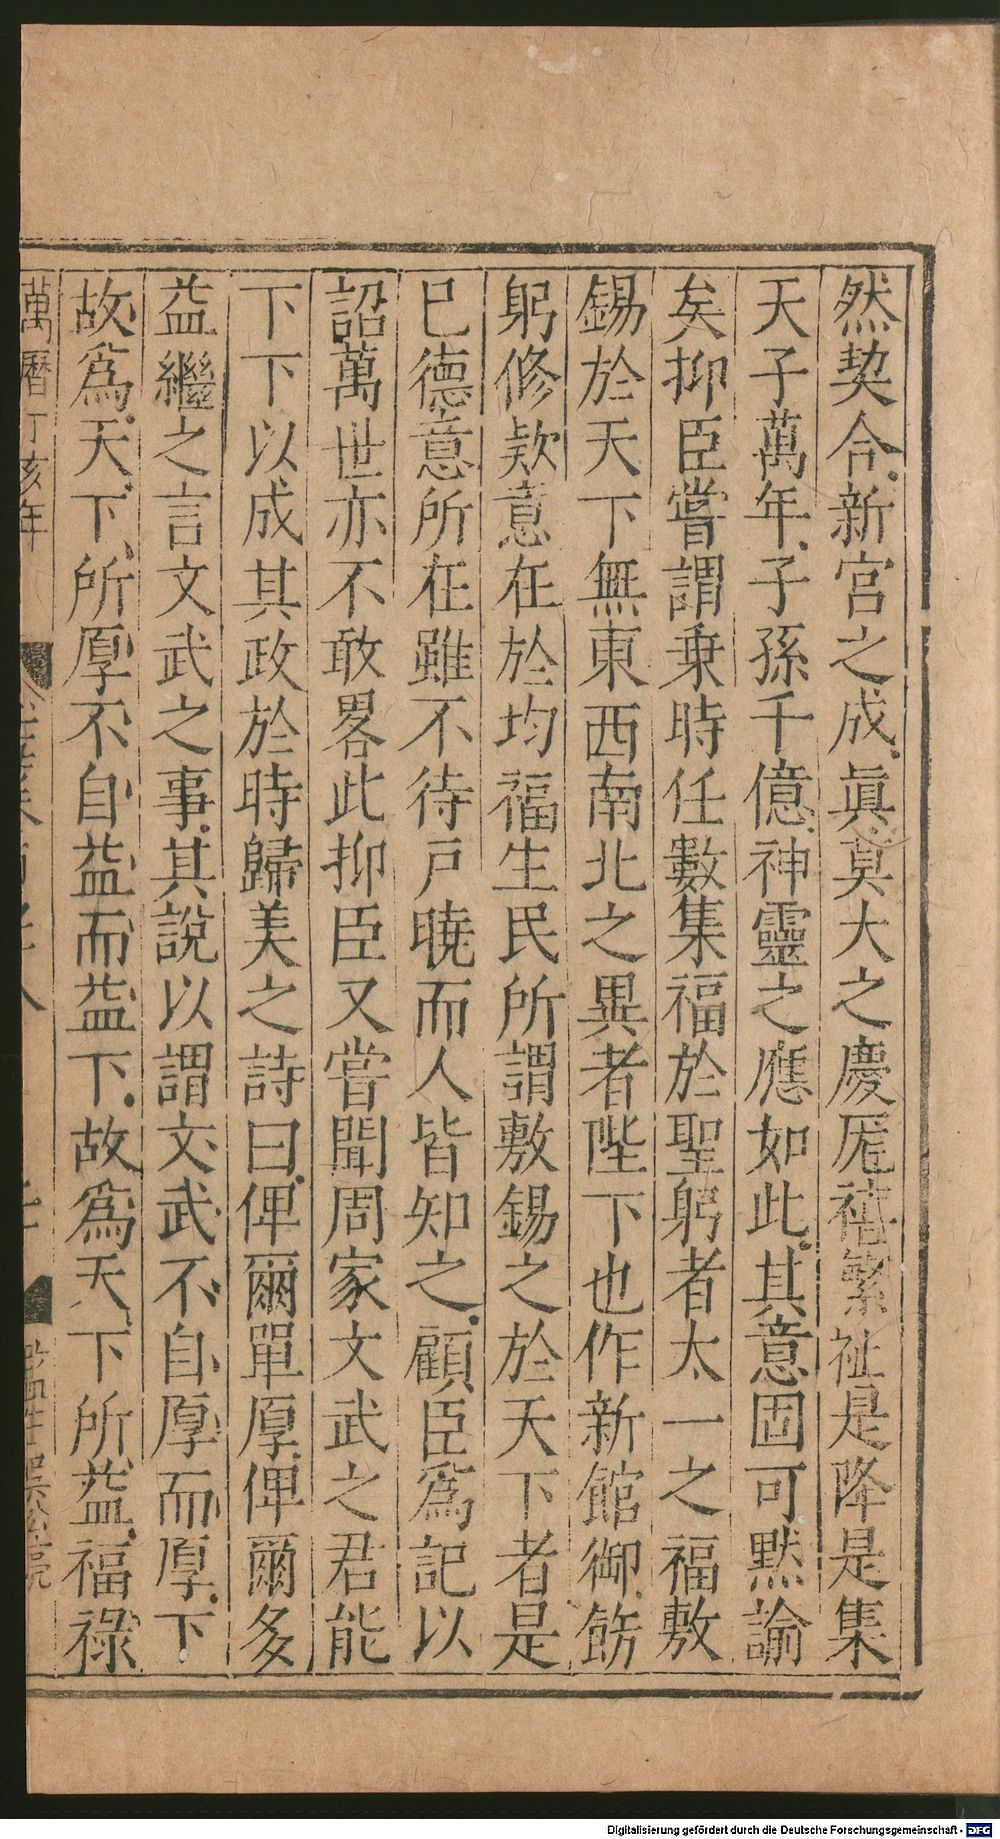 然契合新宮之成真莫大之慶厖禧繁祉是降是集
天子萬年子孫千億神靈之應如此其意固可黙論
矣抑臣嘗謂乗時任數集福於聖躬者太一之福敷
錫於天下無東西南北之異者陛下也作新館御飭
躬修欵意在於均福生民所謂敷錫之於天下者是
已德意所在雖不待戸曉而人皆知之顧臣爲記以
詔萬世亦不敢畧此抑臣又嘗聞周家文武之君能
下下以成其政於時歸美之詩曰俾爾單厚俾爾多
益繼之言文武之事其說以謂文武不自厚而厚下
故爲天下所厚不自益而益下故爲天下所益福祿
萬曆丁亥年
Digitalisierung gefördert durch die Deutsche Forschungsgemeinschaft - DFG